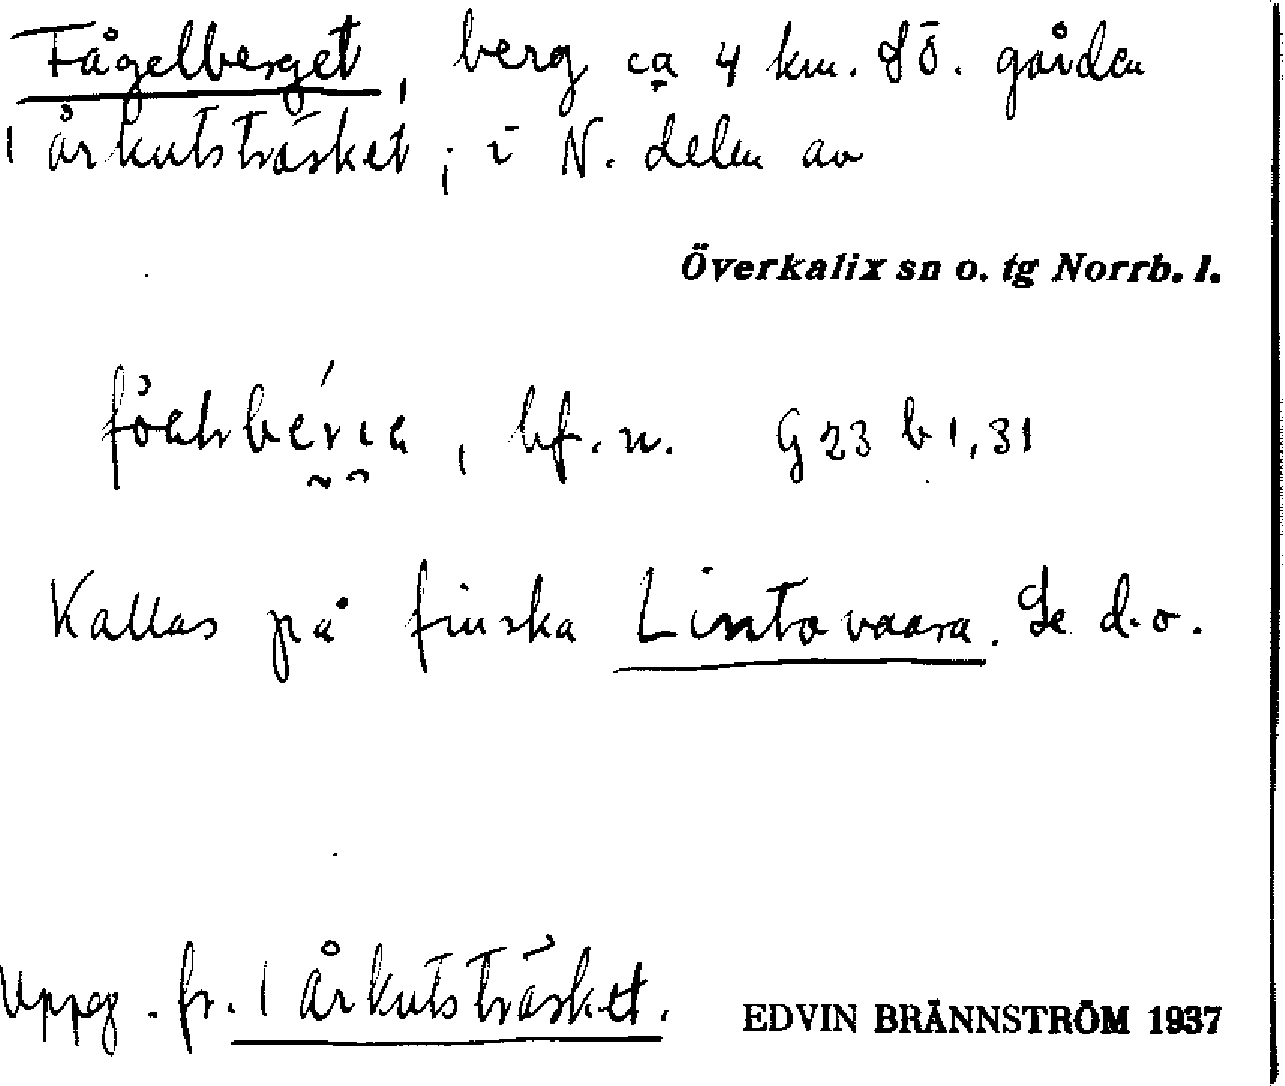 Fågelberget, berg ca 4 km. SÖ. gården
Lårkutsträsket; i N. delen av
Överkalix sn o. tg Norrb. l.
, bf. n. G 23 b 1, 31
Kallas på finska Lintovaara. Se d.o.
Uppg. fr. Lårkutsträsket. EDVIN BRÄNNSTRÖM 1937